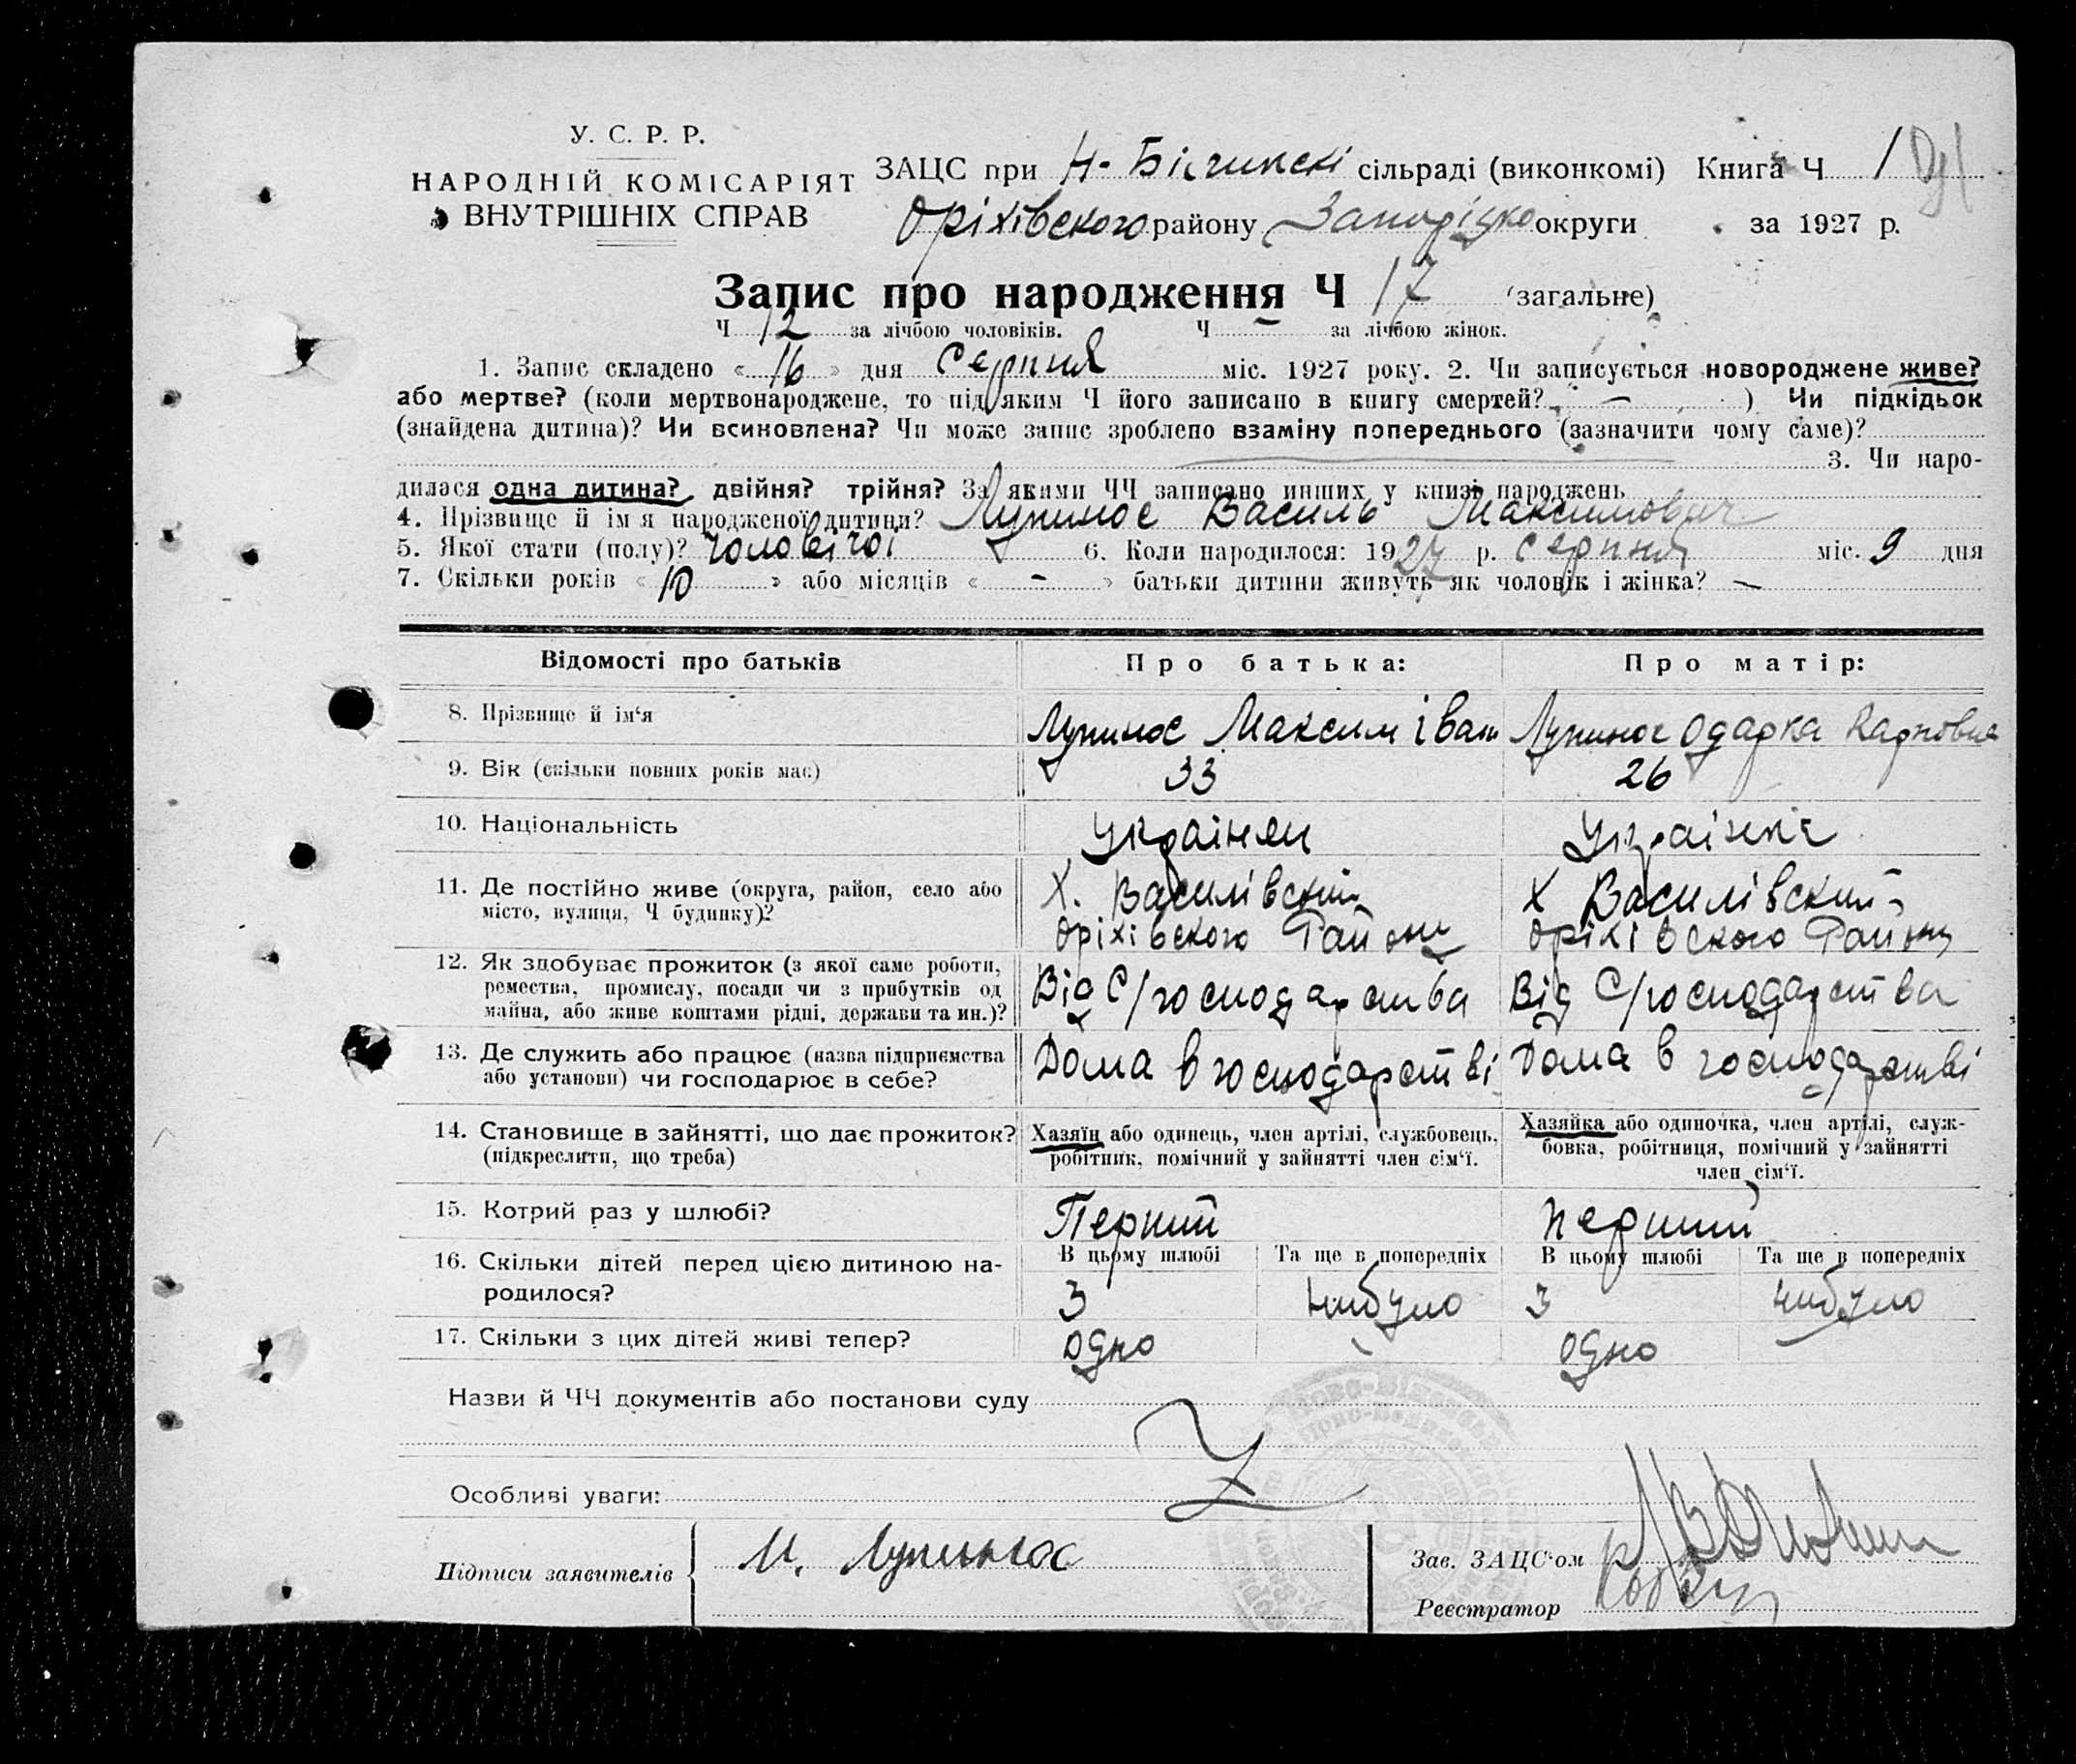 У. С. Р. Р.
НАРОДНІЙ КОМІСАРІЯТ
ВНУТРІШНІХ СПРАВ
ЗАЦС при Н- сільраді (виконкомі) Книга Ч 1
Оріхівского району округи за 1927 р.
Запис про народження Ч 17 (загальне)
Ч 12 за лічбою чоловіків. Ч - за лічбою жінок.
1. Запис складено « 16 » дня Серпня міс. 1927 року. 2. Чи записується новороджене живе?
або мертве? (коли мертвонароджене, то під яким Ч його записано в книгу смертей? — ) Чи підкідьок
(знайдена дитина)? Чи всиновлена? Чи може запис зроблено взаміну попереднього (зазначити чому саме)?
3. Чи наро-
дилася одна дитина? двійня? трійня? За якими ЧЧ записано инших у книзі народжень
4. Прізвище й ім'я народженої дитини? Лупинос Василь Максимович
5. Якої стати (полу)? чоловічої 6. Коли народилося: 1927 р. серпня міс. 9 дня
7. Скільки років « 10 » або місяців « - » батьки дитини живуть як чоловік і жінка? —
Відомості про батьків Про батька: Про матір:
8. Прізвище й ім'я Лупинос Максим Іван Лупинос Одарка Карповна
9. Вік (скільки повних років має) 33 26
10. Національність Українец Українка
11. Де постійно живе (округа, район, село або
місто, вулиця, Ч будинку)?
Х. Василівский Х Василівский
Оріхівского Району Оріхівского Району
12. Як здобуває прожиток (з якої саме роботи,
ремества, промислу, посади чи з прибутків од
майна, або живе коштами рідні, держави та ин.)?
Від С/господарства Від С/господарства
13. Де служить або працює (назва підприємства
або установи) чи господарює в себе?
Дома в господарстві Дома в господарстві
14. Становище в зайнятті, що дає прожиток?
(підкреслити, що треба)
Хазяїн або одинець, член артілі, службовець,
робітник, помічний у зайнятті член сім'ї.
Хазяйка або одиночка, член артілі, служ-
бовка, робітниця, помічний у зайнятті
член сім'ї.
15. Котрий раз у шлюбі? Перший перший
16. Скільки дітей перед цією дитиною на-
родилося?
В цьому шлюбі Та ще в попередніх В цьому шлюбі Та ще в попередніх
3 небуло 3 небуло
17. Скільки з цих дітей живі тепер? одно одно
Назви й ЧЧ документів або постанови суду
Особливі уваги:
Підписи заявителів М. Лупинос
Зав. ЗАЦС'ом
Реєстратор